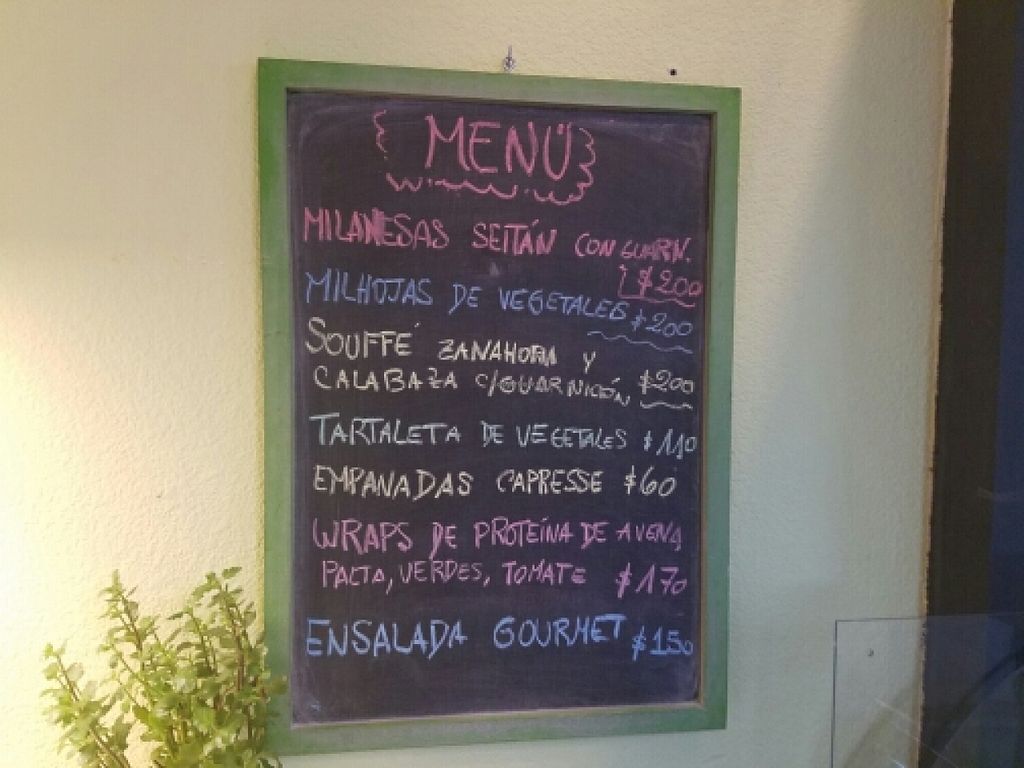 MENÚ
MILANESAS SEITÁN CON GUARN.
$200
MILHOJAS DE VEGETALES $200
SOUFFÉ ZANAHORIA Y
CALABAZA C/GUARNICIÓN $200
TARTALETA DE VEGETALES $110
EMPANADAS CAPRESSE $60
WRAPS DE PROTEÍNA DE AVENA
PALTA, VERDES, TOMATE $170
ENSALADA GOURMET $150